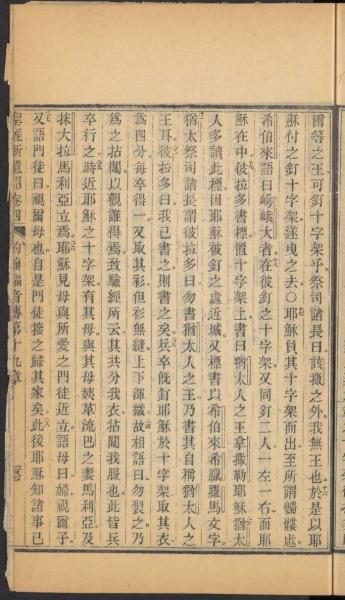 爾等之王可釘十字架乎祭司諸長曰該撒之外我無王也於是以耶
穌付之釘十字架遂曳之去○耶穌負其十字架而出至所謂髑髏處
希伯來語曰峨嶱大者在彼釘之十字架又同釘二人一左一右而耶
穌在中彼拉多書標置十字架上書曰猶太人之王拿撒勒耶穌猶太
人多讀此標因耶穌被釘之處近城又標書以希伯來希臘羅馬文字
猶太祭司諸長謂彼拉多曰勿書猶太人之王乃書其自稱猶太人之
王耳彼拉多曰我已書之則書之矣兵卒既釘耶穌於十字架取其衣
為四分每卒得一又取其衫但衫無縫上下渾織故相語曰勿裂之乃
為之拈鬮以觀誰得焉致驗經所云其共分我衣拈鬮我服也此皆兵
卒行之時近耶穌之十字架有其母與其母姨革流巴之妻馬利亞及
抹大拉馬利亞立焉耶穌見母與所愛之門徒近立語母曰婦視爾子
又語門徒曰視爾母也自是門徒接之歸其家矣此後耶穌知諸事已
聖經新遺詔卷四 約翰福音傳第十九章